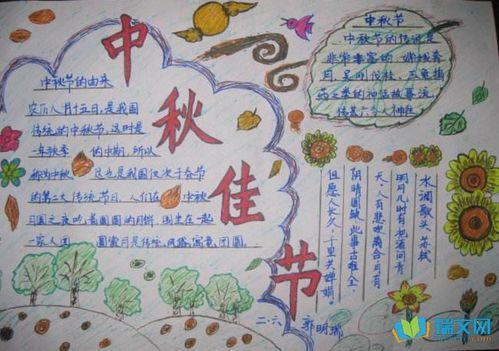 中秋佳节
中秋节的由来
农历八月十五日,是我国
传统的中秋节,这时是
一年秋季 的中期,所以
称为中秋 这也是我国仅次于春节
的第二大传统节日,人们在 中秋
月圆之夜吃着圆圆的月饼,围坐在一起
一家人团 圆赏月是传统,风俗,寓意,团圆
中秋节
中秋节的传说是
非常丰富的,嫦娥奔
月,吴刚伐桂,玉兔捣
药之类的神话故事流
传甚广,令人神往
水调歌头 苏轼
明月几时有把酒问青
天,人有悲欢离合月有
阴晴圆缺,此事古难全,
但愿人长久,千里共婵娟。
二.六
瑞文网